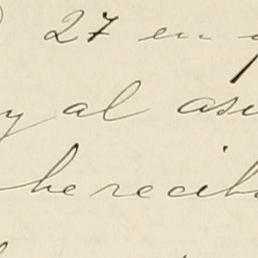 27 en
y al
he recib